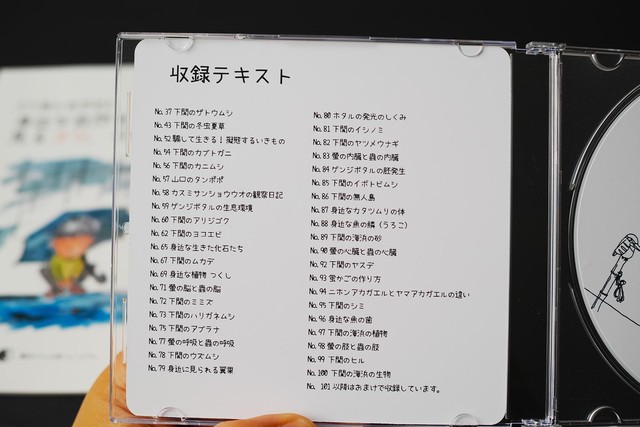 収録テキスト
No.37 下関のザトウムシ
No.43 下関の冬虫夏草
No.52 騙して生きる！擬態するいきもの
No.54 下関のカブトガニ
No.56 下関のカニムシ
No.57 山口のタンポポ
No.58 カスミサンショウウオの観察日記
No.59 ゲンジボタルの生息環境
No.60 下関のアリジゴク
No.62 下関のヨコエビ
No.65 身近な生きた化石たち
No.67 下関のムカデ
No.69 身近な植物 つくし
No.71 螢の脳と蟲の脳
No.72 下関のミミズ
No.73 下関のハリガネムシ
No.75 下関のアブラナ
No.77 螢の呼吸と蟲の呼吸
No.78 下関のウズムシ
No.79 身近に見られる翼果
No.80 ホタルの発光のしくみ
No.81 下関のイシノミ
No.82 下関のヤツメウナギ
No.83 螢の内臓と蟲の内臓
No.84 ゲンジボタルの胚発生
No.85 下関のイボトビムシ
No.86 下関の無人島
No.87 身近なカタツムリの体
No.88 身近な魚の鱗（うろこ）
No.89 下関の海浜の砂
No.90 螢の心臓と蟲の心臓
No.92 下関のヤスデ
No.93 螢かごの作り方
No.94 ニホンアカガエルとヤマアカガエルの違い
No.95 下関のシミ
No.96 身近な魚の歯
No.97 下関の海浜の植物
No.98 螢の肢と蟲の肢
No.99 下関のヒル
No.100 下関の海浜の生物
No. 101 以降はおまけで収録しています。